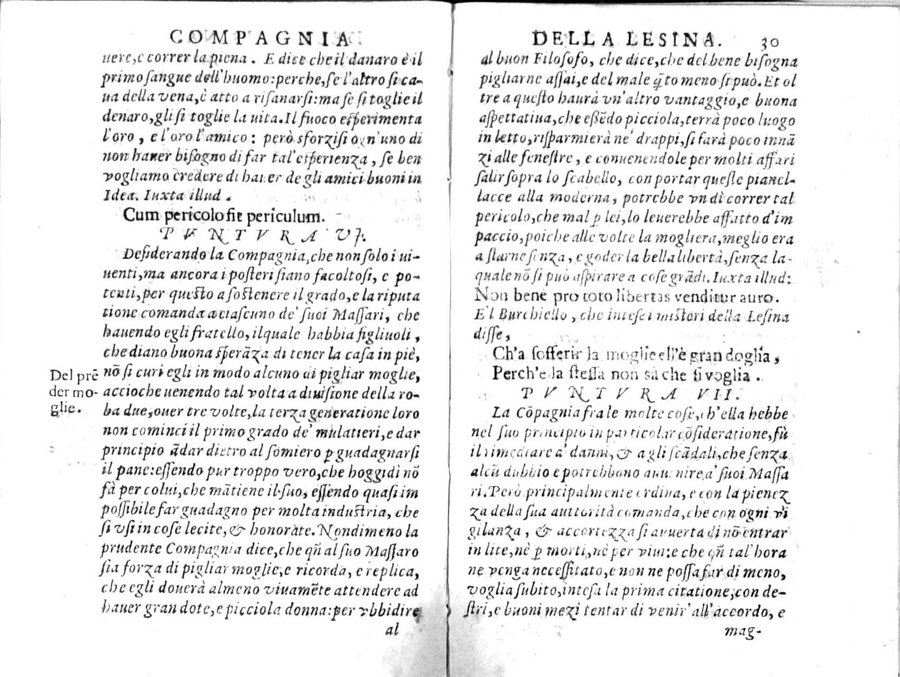 COMPAGNIA
uere, e correr la piena. E dice che il danaro è il
primo sangue dell'huomo: perche, se l'altro si ca-
ua della vena, è atto a risanarsi: ma se si toglie il
denaro, gli si toglie la uita. Il fuoco esperimenta
l'oro, e l'oro l'amico: però sforzisi ogn'uno di
non hauer bisogno di far tal'esperienza, se ben
vogliamo credere di hauer de gli amici buoni in
Idea. Iuxta illud.
Cum pericolo fit periculum.
PVNTVRA VI.
Desiderando la Compagnia, che non solo i ui-
uenti, ma ancora i posteri siano facoltosi, e po-
tenti, per questo a sostenere il grado, e la riputa
tione comanda a ciascuno de' suoi Massari, che
hauendo egli fratello, ilquale habbia figliuoli,
che diano buona sperãza di tener la casa in piè,
nõ si curi egli in modo alcuno di pigliar moglie,
accioche uenendo tal volta a diuisione della ro-
ba due, ouer tre volte, la terza generatione loro
non cominci il primo grado de' mulattieri, e dar
principio ãdar dietro al somiero p guadagnarsi
il pane: essendo pur troppo vero, che hoggidì nõ
fà per colui, che mãtiene il suo, essendo quasi im
possibile far guadagno per molta industria, che
si vsi in cose lecite, & honorate. Nondimeno la
prudente Compagnia dice, che qñ al suo Massaro
sia forza di pigliar moglie, e ricorda, e replica,
che egli douerà almeno viuamẽte attendere ad
hauer gran dote, e picciola donna: per vbbidire
al
Del prẽ
der mo-
glie.
DELLA LESINA. 30
al buon Filosofo, che dice, che del bene bisogna
pigliarne assai, e del male q̃to meno si può. Et ol
tre a questo haurà vn'altro vantaggio, e buona
aspettatiua, che essẽdo picciola, terrà poco luogo
in letto, risparmierà ne' drappi, si farà poco innã
zi alle fenestre, e conuenendole per molti affari
salir sopra lo scabello, con portar queste pianel-
lacce alla moderna, potrebbe vn dì correr tal
pericolo, che mal p lei, lo leuerebbe affatto d'im
paccio, poiche alle volte la mogliera, meglio era
a starne senza, e goder la bella libertà, senza la-
quale nõ si può aspirare a cose grãdi. Iuxta illud:
Non bene pro toto libertas venditur auro.
E'l Burchiello, che intese i misteri della Lesina
disse,
Ch'a sofferir la moglie ell'è gran doglia,
Perch'e la stessa non sà che si voglia.
PVNTVRA VII.
La Cõpagnia fra le molte cose, ch'ella hebbe
nel suo principio in particolar cõsideratione, fù
il rimediare a' danni, & a gli scãdali, che senza
alcũ dubbio e potrebbono auuenire a' suoi Massa
ri. Però principalmente ordina, e con la pienez
za della sua auttorità comanda, che con ogni vi
gilanza, & accortezza si auuerta di nõ entrar
in lite, nè p morti, nè per viui: e che qñ tal'hora
ne venga necessitato, e non ne possa far di meno,
voglia subito, intesa la prima citatione, con de-
stri, e buoni mezi tentar di venir'all'accordo, e
mag-